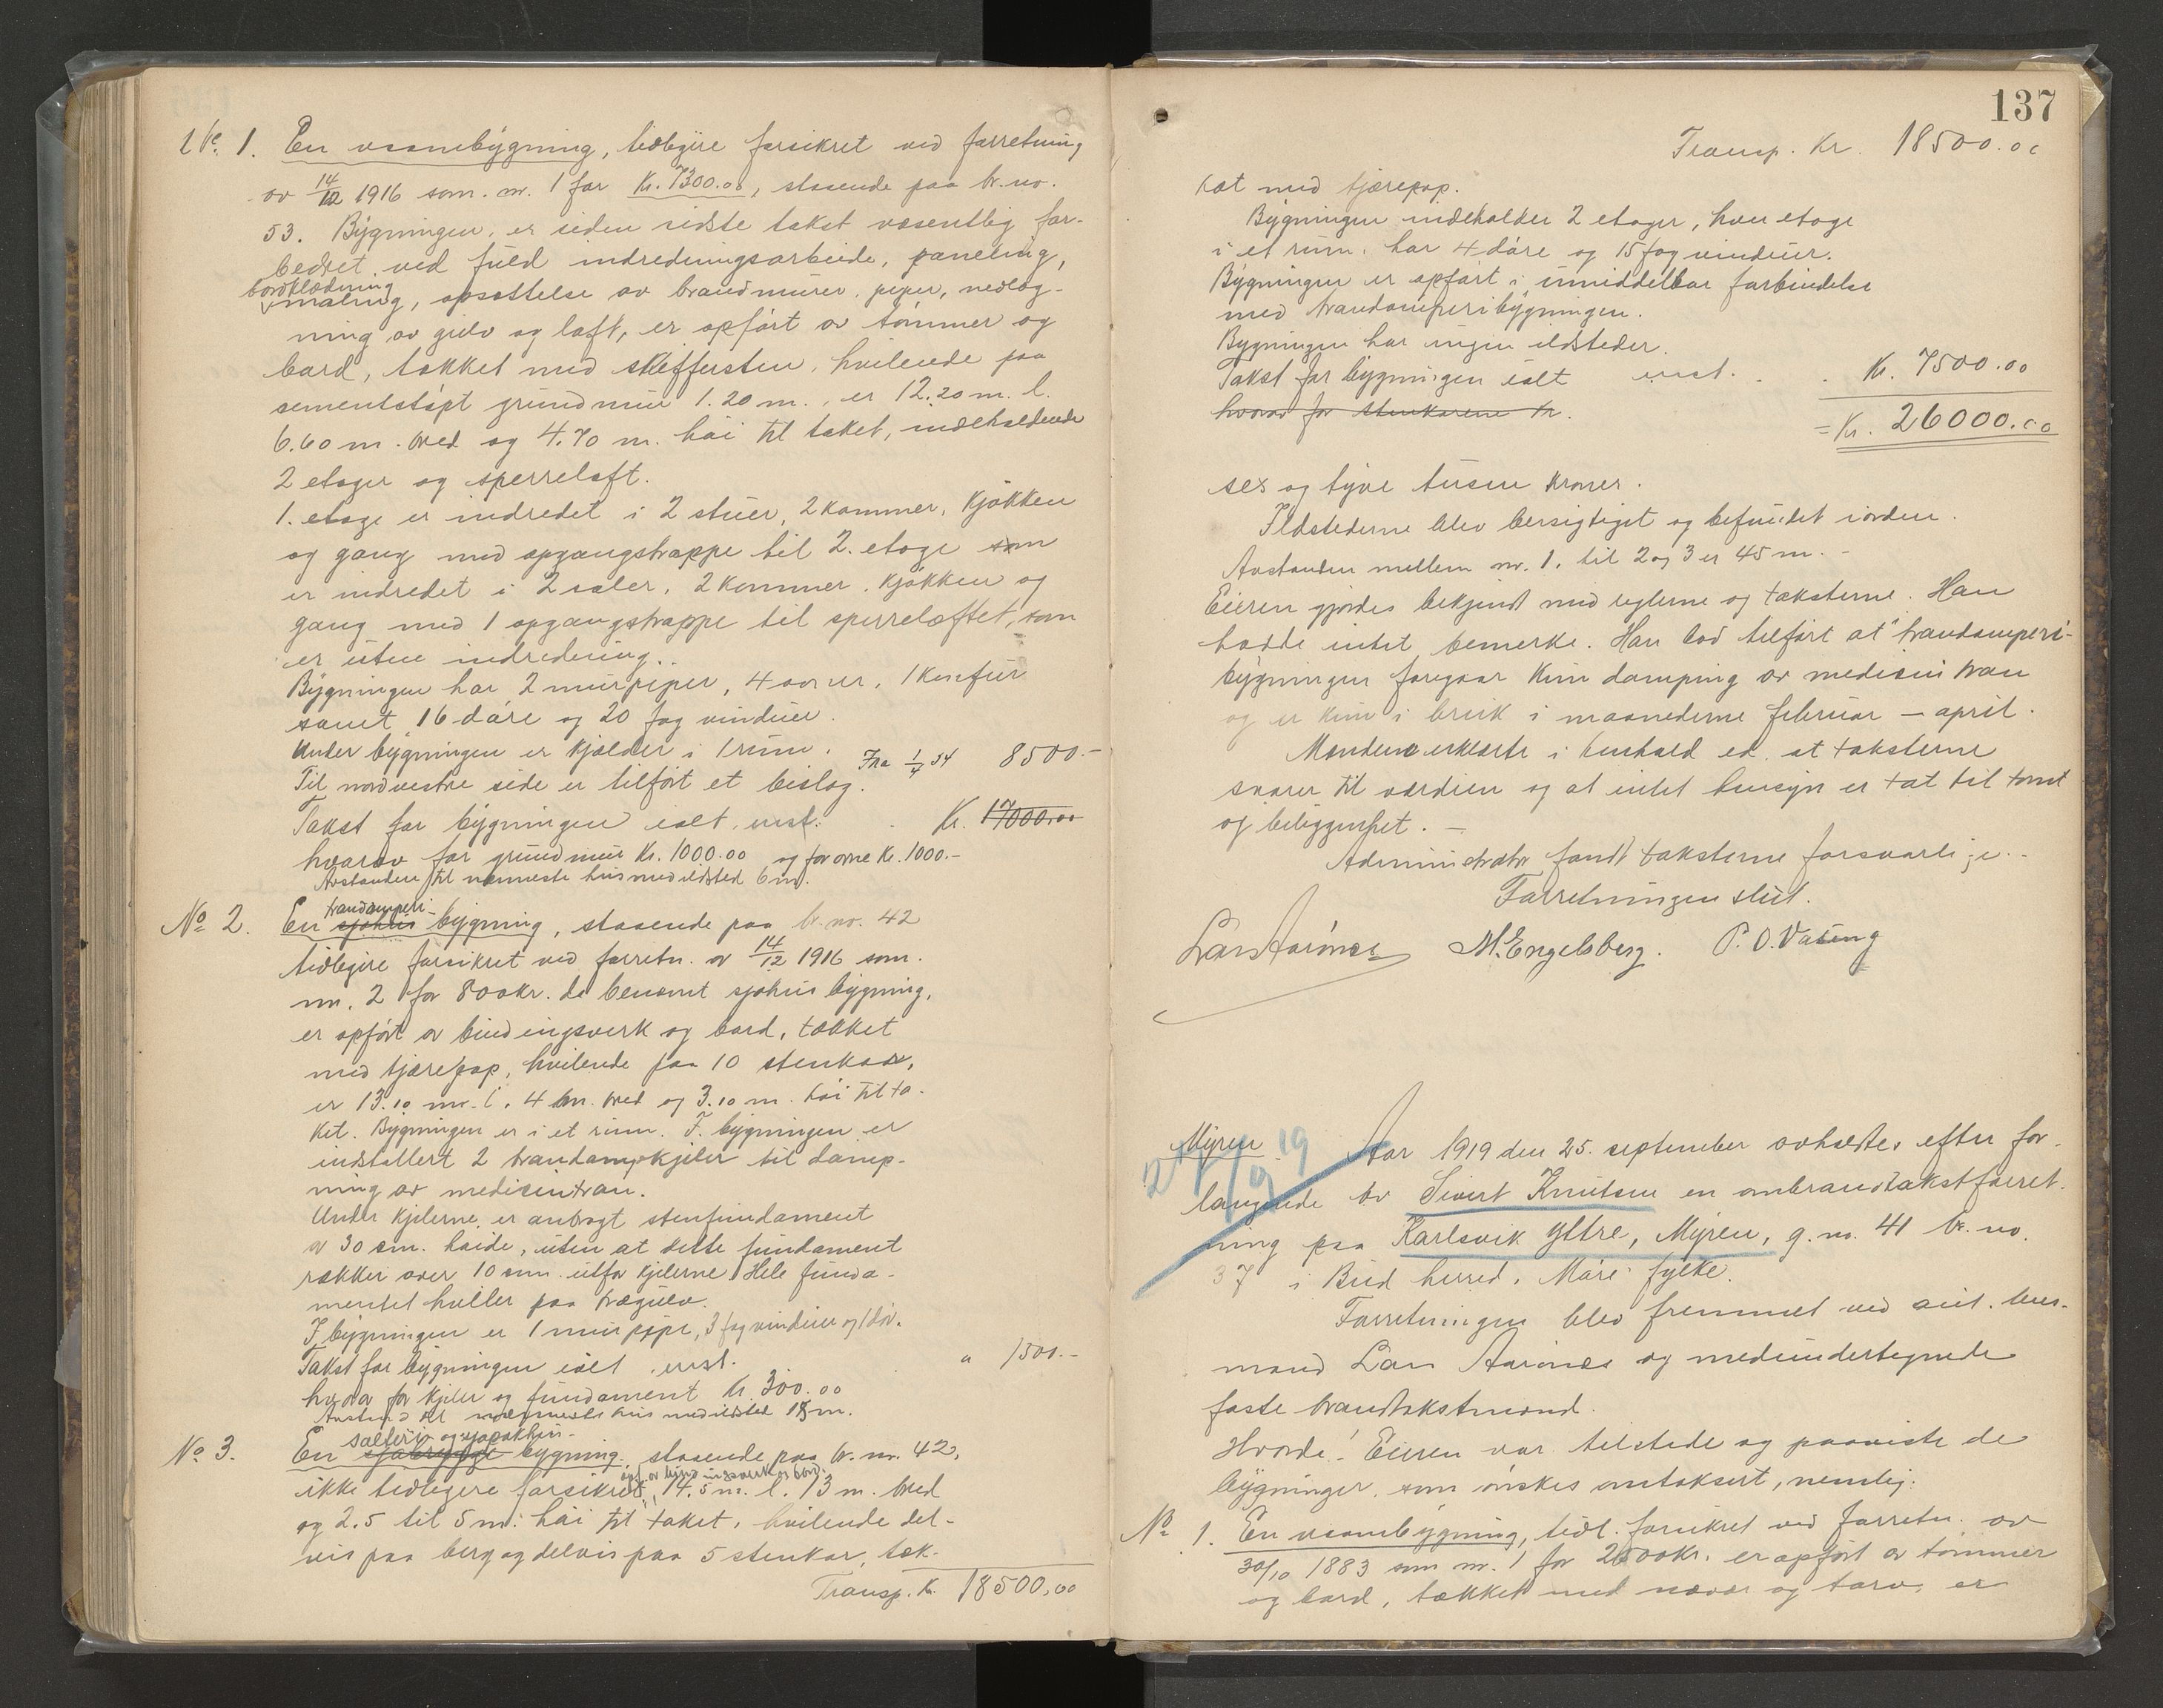 No. 1. En vaanebygning, tidligere forsikret ved forretning
av 14/12 1916 som nr. 1 for Kr. 7300.00, staaende paa br.no.
53. Bygningen, er siden sidste takst væsentlig for-
bedret ved fuld indredningsarbeide, paneling,
bordklædning
maling, opsættelse av brandmurer, piper, nedlæg-
ning av gulv og loft, er opført av tømmer og
bord, tækket med skiffersten, hvilende paa
sementstøpt grundmur 1.20 m., er 12.20 m. l.
6.60 m. bred og 4.70 m. høi til taket, indeholdende
2 etager og sperreloft.
1. etage er indredet i 2 stuer, 2 kammer, kjøkken
og gang med opgangstrappe til 2. etage som
er indredet i 2 saler, 2 kammer, kjøkken og
gang med 1 opgangstrappe til sperreloftet, som
er uten indredning.
Bygningen har 2 murpiper, 4 ovner, 1 komfur
samt 16 døre og 20 fag vinduer.
Under bygningen er kjælder i 1 rum.
Fra 1/4 54 8500.-
Til nordvestre side er tilført et bislag.
Takst for bygningen ialt inst. Kr. 17000.00
hvorav for grundmur Kr. 1000.00 og for ovne Kr. 1000.-
Avstanden til nærmeste hus med ildsted 6 m.
trandamperi-
No 2. En sjøhus bygning, staaende paa br. no. 42
tidligere forsikret ved forretn. av 14/12 1916 som
nr. 2 for 800 kr. da benævnt sjøhus bygning,
er opført av bindingsverk og bord, tækket
med tjærepap, hvilende paa 10 stenkar,
er 13.10 m. l. 4 m. bred og 3.10 m. høi til ta-
ket. Bygningen er i et rum. I bygningen er
indstallert 2 trandampkjeler til damp-
ning av medicintran.
Under kjelerne er anbragt stenfundament
av 30 cm. høide, uten at dette fundament
rækker over 10 cm. utfor kjelerne. Hele funda-
mentet hviler paa trægulv.
I bygningen er 1 murpipe, 3 fag vinduer og 1 dør.
Takst for bygningen ialt inst. " 1500.-
hvorav for kjeler og fundament Kr. 300.00
Avstand til nærmeste hus med ildsted 15 m.
salteri- og sjøpakhus-
No 3. En sjøbrygge bygning, staaende paa br. nr. 42,
opf. av bindingsverk og bord.
ikke tidligere forsikret, 14.5 m. l. 13 m. bred
og 2.5 til 5 m. høi til taket, hvilende del-
vis paa berg og delvis paa 5 stenkar, tæk-
Transp. Kr. 18500,00
137
Transp. Kr. 18500.00
ket med tjærepap.
Bygningen indeholder 2 etager, hver etage
i et rum, har 4 døre og 15 fag vinduer.
Bygningen er opført i umiddelbar forbindelse
med trandamperibygningen.
Bygningen har ingen ildsteder.
Takst for bygningen ialt inst. Kr. 7500.00
hvorav for stenkarene Kr.
= Kr. 26000.00
sex og tyve tusen kroner.
Ildstederne blev besigtiget og befundet iorden.
Avstanden mellem nr. 1. til 2 og 3 er 45 m. -
Eieren gjordes bekjendt med reglerne og taksterne. Han
hadde intet bemerke. Han lod tilført at i trandamperi-
bygningen foregaar kun damping av medicin tran
og er kun i bruk i maanederne februar - april.
Mændene erklærte i henhold ed, at taksterne
svarer til værdien og at intet hensyn er tat til tomt
og beliggenhet. -
Administrator fandt taksterne forsvarlige. -
Forretningen slut.
Lars Aarönes M. Engelsberg. P. O. Vaseng
Myren Aar 1919 den 25. september avholdtes efter for-
langende av Sivert Knutsen en ombrandtakstforret-
ning paa Karlsvik Yttre, Myren, g. no. 41 br. no.
37 i Bud herred, Møre fylke.
Forretningen blev fremmet ved aut. lens-
mand Lars Aarönes og medundertegnede
faste brandtakstmænd.
Hvorda! Eieren var tilstede og paaviste de
bygninger, som ønskes omtaksert, nemlig:
No 1. En vaanebygning, tidl. forsikret ved forretn. av
30/10 1883 som nr. 1 for 2600 kr. er opført av tømmer
og bord, tækket med næver og torv, er